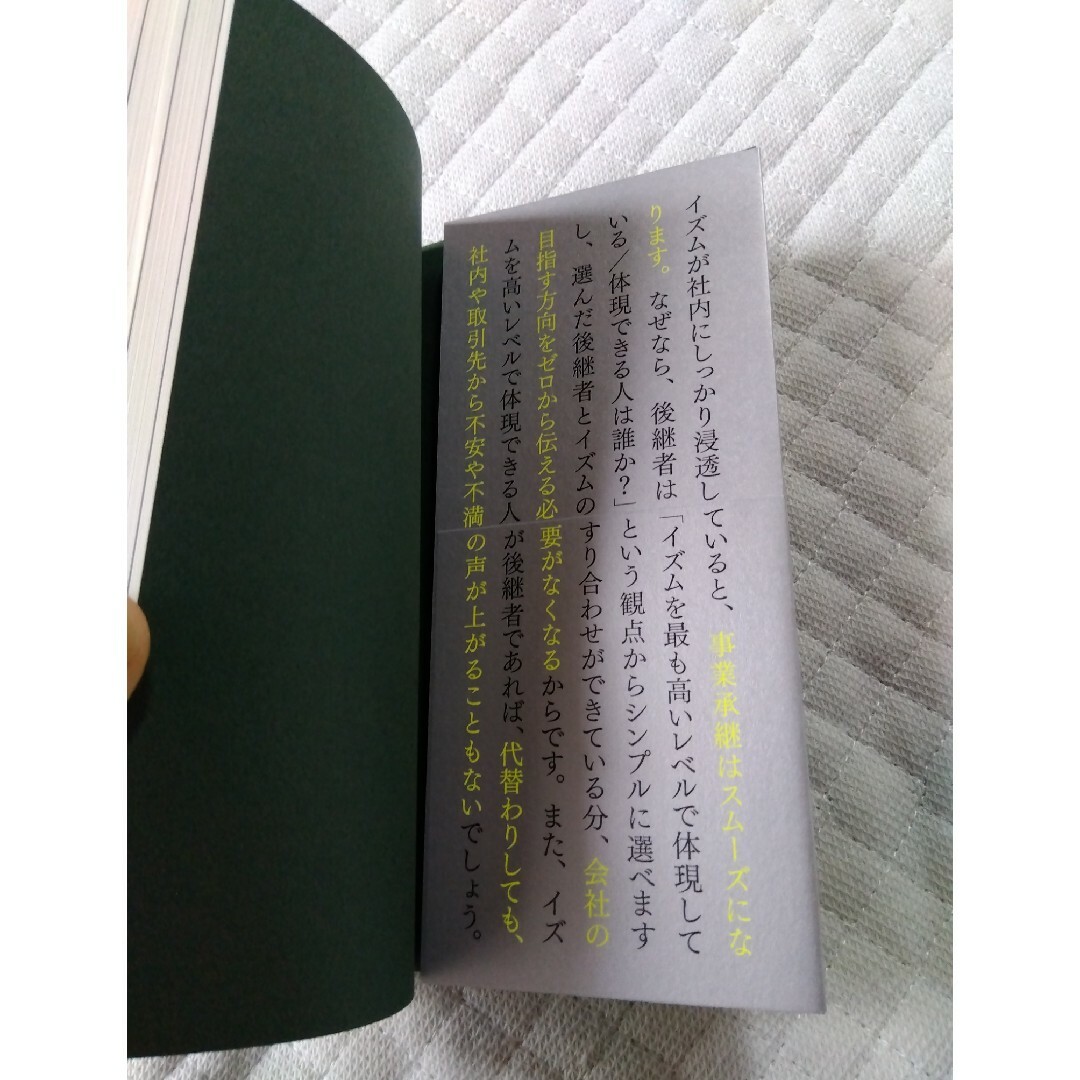 イズムが社内にしっかり浸透していると、事業承継はスムーズにな
ります。なぜなら、後継者は「イズムを最も高いレベルで体現して
いる／体現できる人は誰か？」という観点からシンプルに選べます
し、選んだ後継者とイズムのすり合わせができている分、会社の
目指す方向をゼロから伝える必要がなくなるからです。また、イズ
ムを高いレベルで体現できる人が後継者であれば、代替わりしても、
社内や取引先から不安や不満の声が上がることもないでしょう。